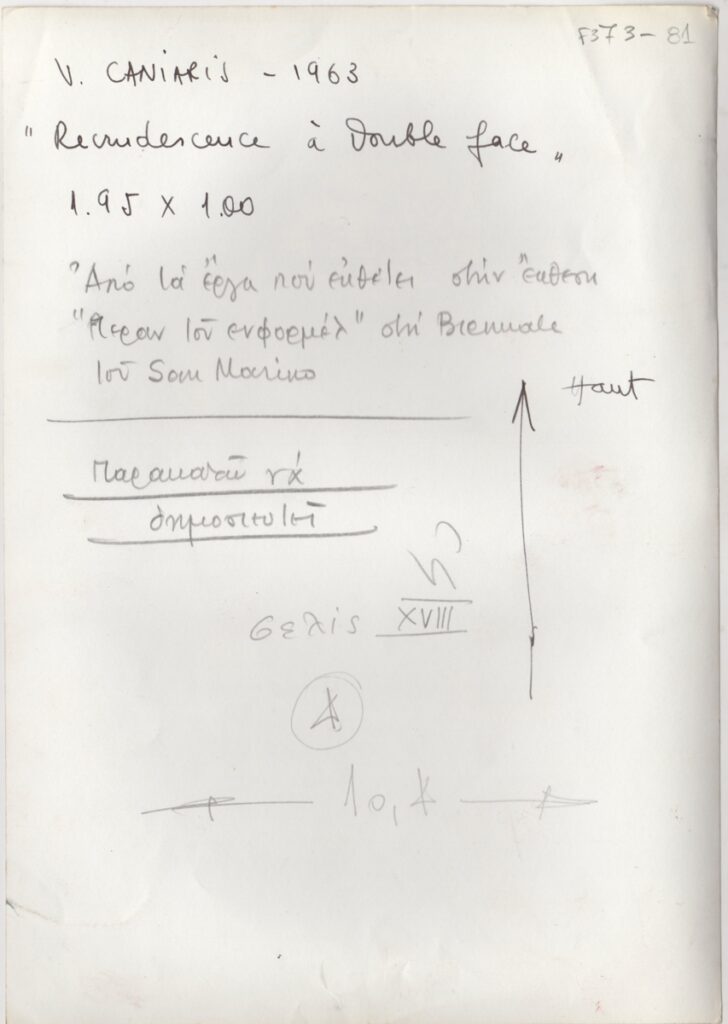 F373-81
V. CANIARIS - 1963
"Recrudescence à double face"
1.95 x 1.00
Ἀπό τά ἔργα πού ἐκθέτει στήν ἔκθεση
"Πέραν τοῦ ενφορμέλ" στή Biennale
τοῦ San Marino
Haut
Παρακαλῶ νά
δημοσιευτεῖ
σελίς XVIII
10,4